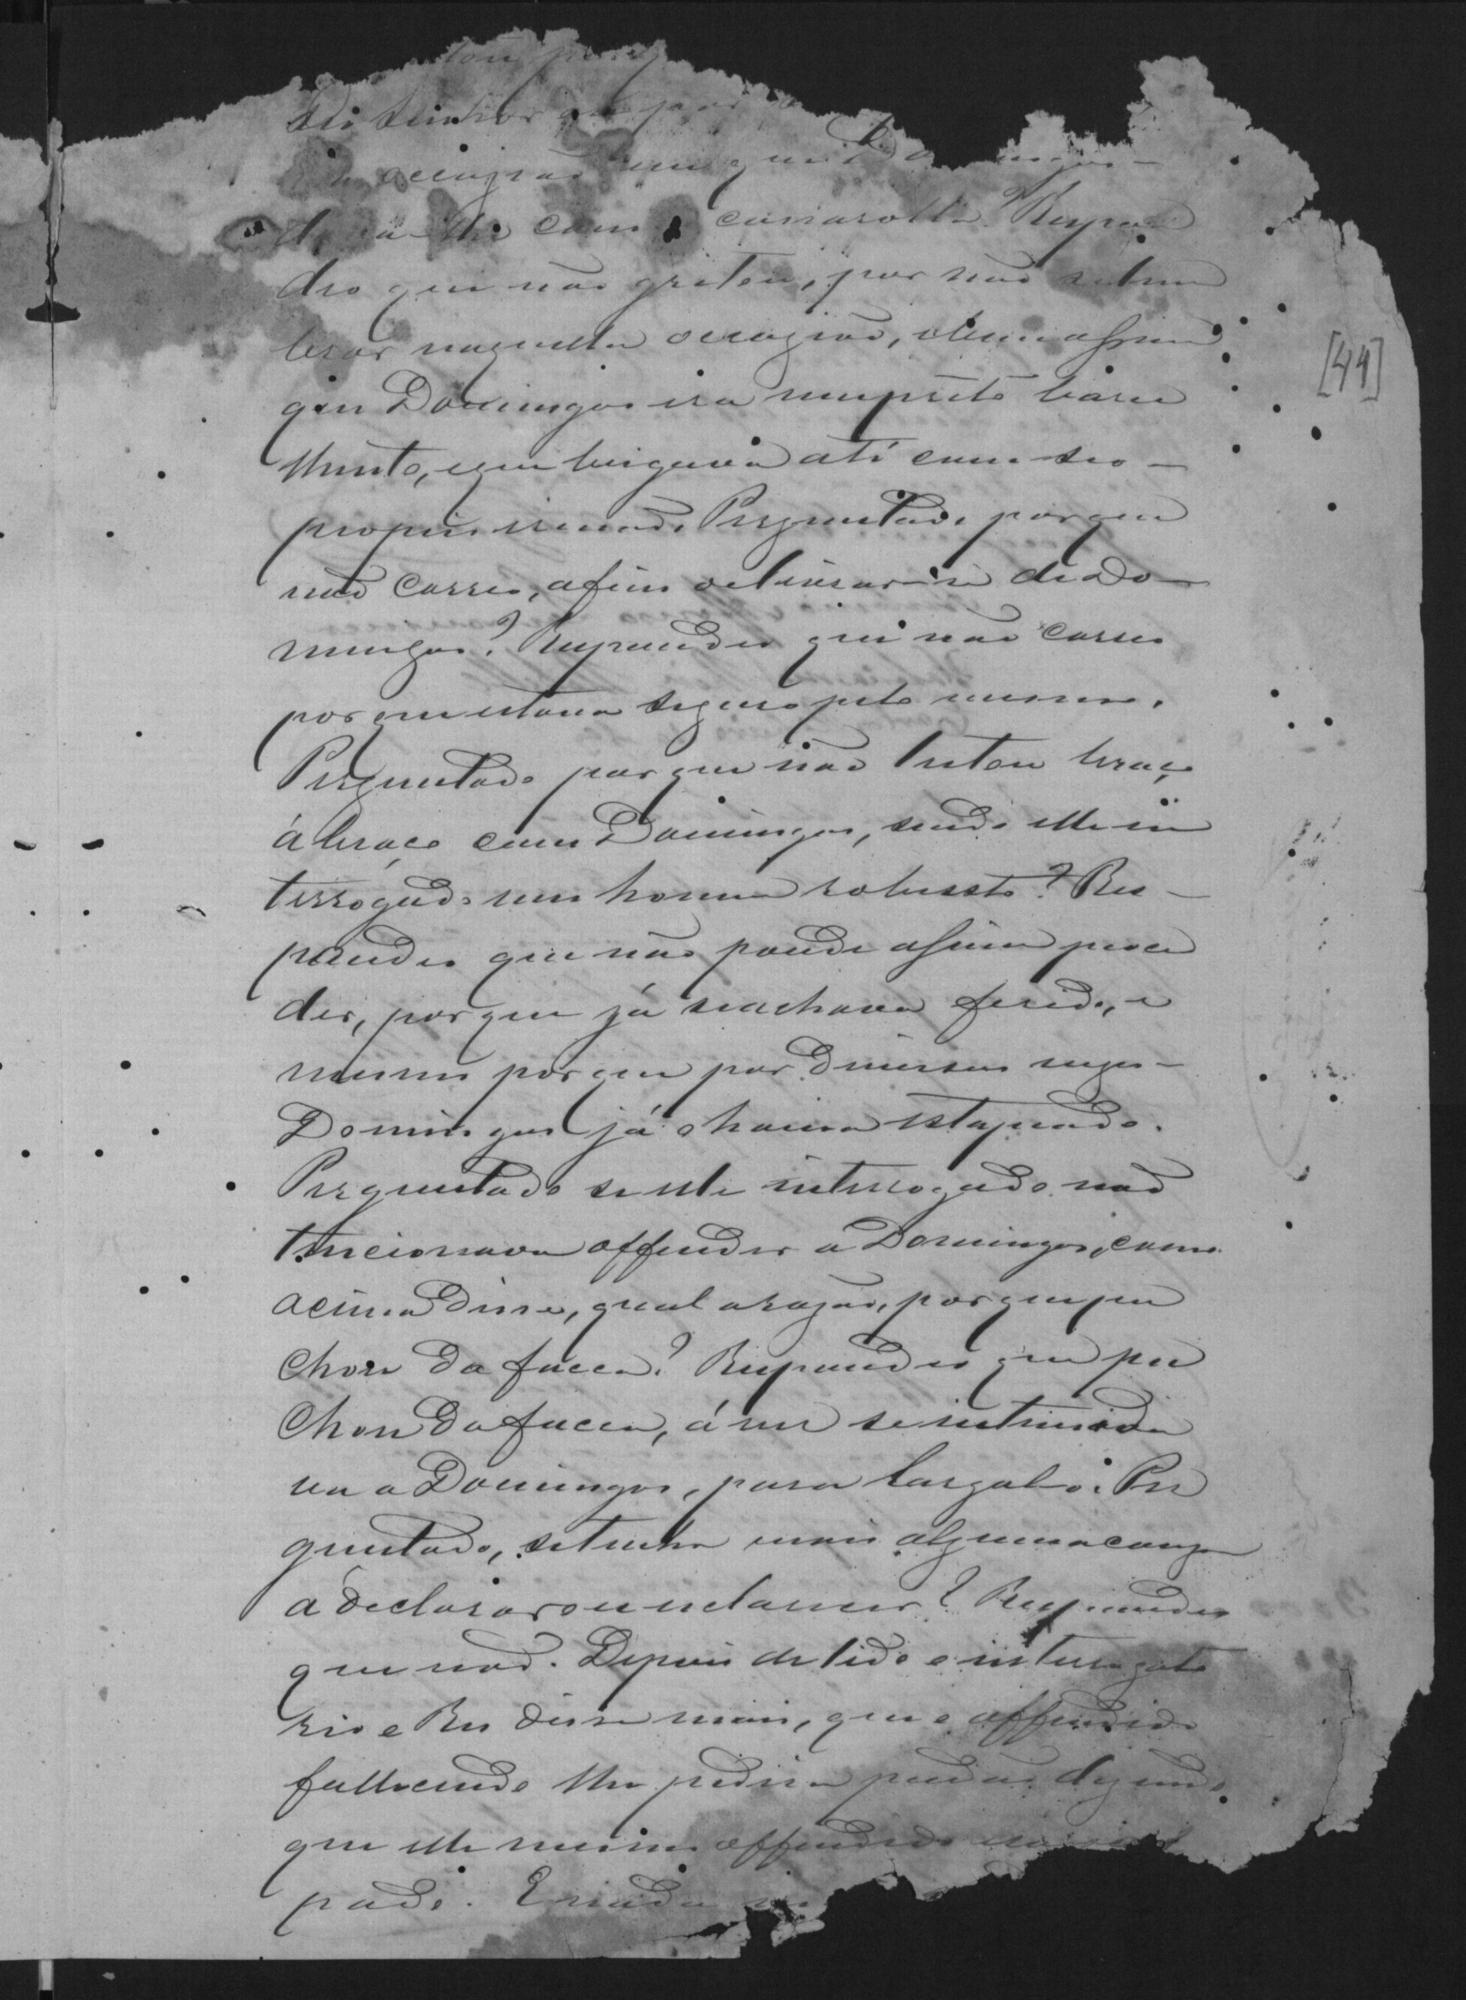 tou por
seo senhor por
occazião em que Domingos
dava-lhe com a camarotta? Respon
deo que não gritou, por não se lem
brar naquella occazião, e bem assim
que Domingos era um preto baru
lhento, e que brigava até com seo
proprio irmão. Perguntado porque
não correo, afim de livrar-se de Do-
mingos? Respondeo que não correo
porque estava seguro pelo mesmo.
Perguntado porque não lutou braço
á braço com Domingos, sendo elle in
terrogado um homem robussto? Res-
pondeo que não poude assim proce
der, porque já se achava ferido, e
mesmo porque por diversas vezes
Domingos já o havia esta
Perguntado se elle interrogado não
tencionava offender a Domingos, como
acima disse, qual a razão, porque pu
chou da faca? Respondeo que pu
chou da faca, á ver se intimida
va a Domingos, para largal-o. Per
guntado, se tinha mais alguma couza
á declarar ou esclarecer? Respondeo
que não. Depois de lido o interrogato
rio o Reo disse mais, que o offendido
fallecendo lhe pedira perdão, dizendo
que elle mesmo offendido
pado. E nada
[44]